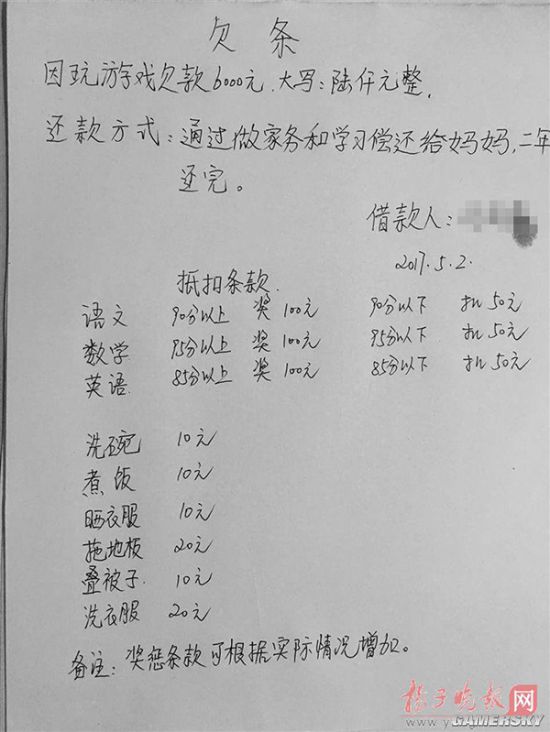 欠条
因玩游戏欠款6000元.大写:陆仟元整.
还款方式:通过做家务和学习偿还给妈妈,二年
还完。
借款人:
2017.5.2.
抵扣条款
语文 90分以上 奖100元 90分以下 扣50元
数学 95分以上 奖100元 95分以下 扣50元
英语 85分以上 奖100元 85分以下 扣50元
洗碗 10元
煮饭 10元
晒衣服 10元
拖地板 20元
叠被子 10元
洗衣服 20元
备注:奖惩条款可根据实际情况增加。
扬子晚报网
GAMERSKY